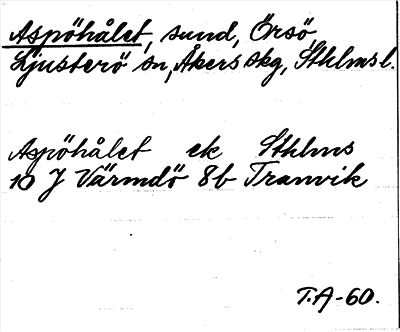 Aspöhålet, sund, Örsö,
Ljusterö sn, Åkers skg, Sthlms l.
Aspöhålet ek Sthlms
10 J Värmdö 8b Tranvik
T.A-60.